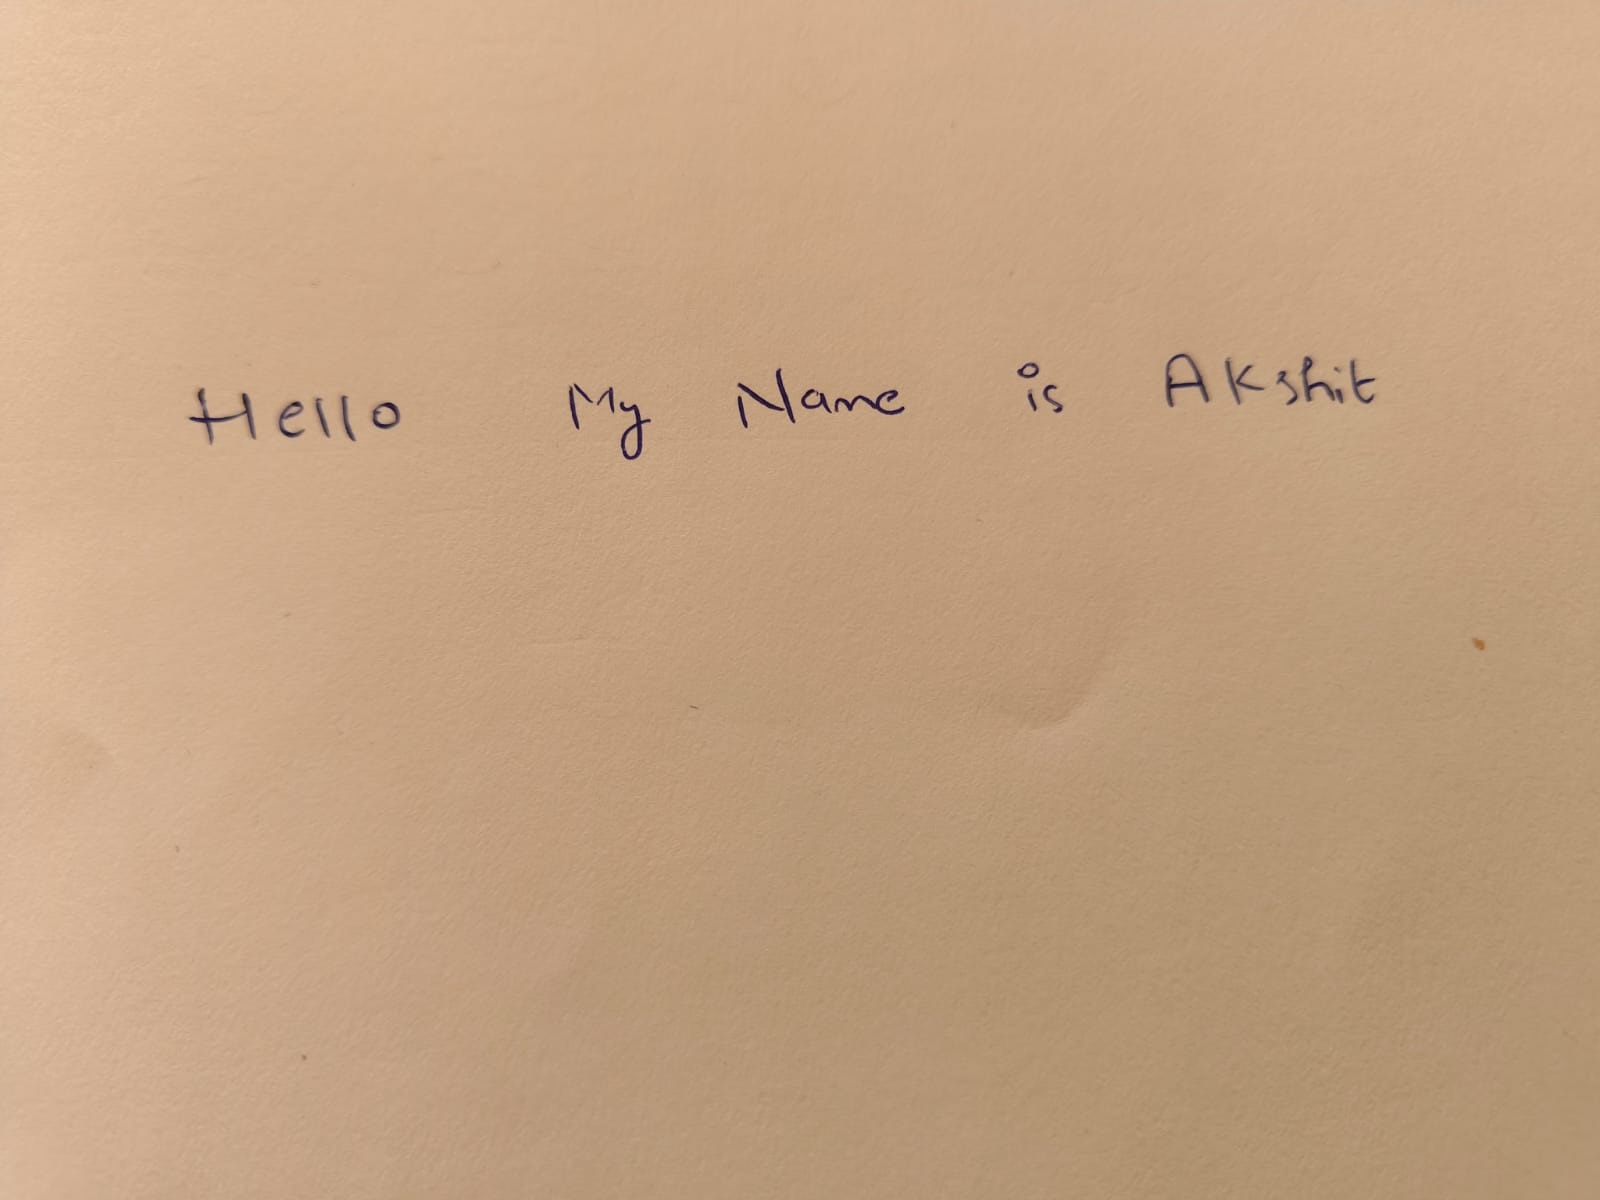 Hello My Name is Akshit